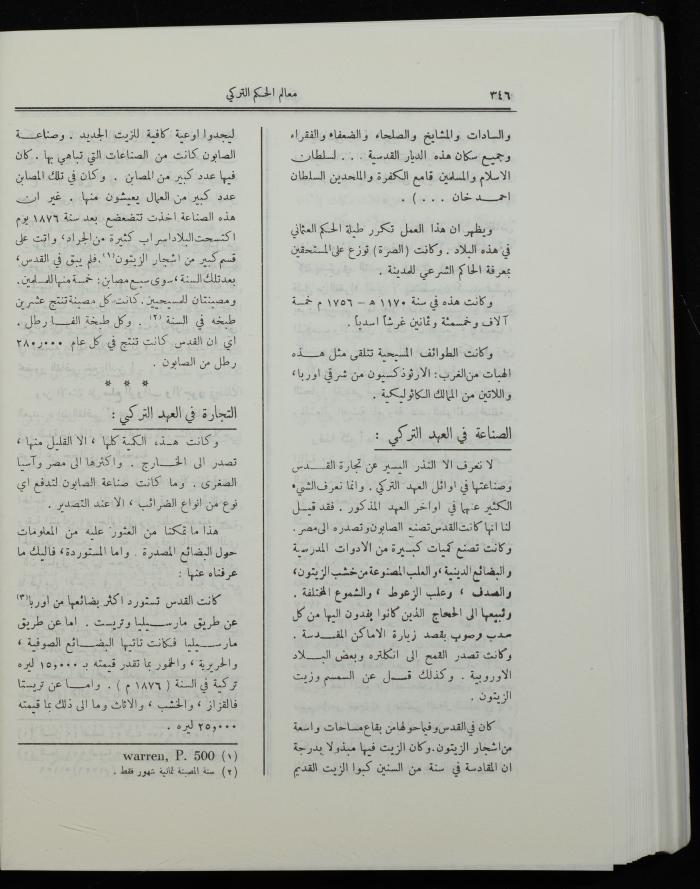 ٣٤٦
معالم الحكم التركي
والسادات والمشايخ والصلحاء والضعفاء والفقراء
وجميع سكان هذه الديار القدسية . . . لسلطان
الاسلام والمسلمين قامع الكفرة والملحدين السلطان
احمد خان . . . ) .
ويظهر ان هذا العمل تكرر طيلة الحكم العثماني
في هذه البلاد . وكانت (الصرة) توزع على المستحقين
بمعرفة الحاكم الشرعي للمدينة .
وكانت هذه في سنة ١١٧٠ هـ – ١٧٥٦ م خمسة
آلاف وخمسمئة وثمانين غرشاً اسدياً .
وكانت الطوائف المسيحية تتلقى مثل هذه
الهبات من الغرب : الارثوذكسيون من شرقي اوربا ،
واللاتين من الممالك الكاثوليكية .
الصناعة في العهد التركي :
لا نعرف الا النذر اليسير عن تجارة القدس
وصناعتها في اوائل العهد التركي . وانما نعرف الشيء
الكثير عنهما في اواخر العهد المذكور . فقد قيل
لنا انها كانت القدس تصنع الصابون وتصدره الى مصر .
وكانت تصنع كميات كبيرة من الادوات المدرسية
والبضائع الدينية ، والعلب المصنوعة من خشب الزيتون ،
والصدف ، وعلب الزعوط ، والشموع المختلفة .
وتبيعها الى الحجاج الذين كانوا يفدون اليها من كل
حدب وصوب بقصد زيارة الاماكن المقدسة .
وكانت تصدر القمح الى انكلتره وبعض البلاد
الاوروبية . وكذلك قل عن السمسم وزيت
الزيتون .
كان في القدس وفيما حولها من بقاع مساحات واسعة
من اشجار الزيتون . وكان الزيت فيها مبذولا بدرجة
ان المقادسة في سنة من السنين كبوا الزيت القديم
ليجدوا اوعية كافية للزيت الجديد . وصناعة
الصابون كانت من الصناعات التي تباهي بها . كان
فيها عدد كبير من المصابن . وكان في تلك المصابن
عدد كبير من العمال يعيشون منها . غير ان
هذه الصناعة اخذت تتضعضع بعد سنة ١٨٧٦ يوم
اكتسحت البلاد اسراب كثيرة من الجراد ، واتت على
قسم كبير من اشجار الزيتون (١) . فلم يبق في القدس ،
بعد تلك السنة ، سوى سبع مصابن : خمسة منها للمسلمين .
ومصبنتان للمسيحيين . كانت كل مصبنة تنتج عشرين
طبخه في السنة (٢) . وكل طبخة الفا رطل .
اي ان القدس كانت تنتج في كل عام ٢٨٠,٠٠٠
رطل من الصابون .
* * *
التجارة في العهد التركي :
وكانت هذه الكمية كلها ، الا القليل منها ،
تصدر الى الخارج . واكثرها الى مصر وآسيا
الصغرى . وما كانت صناعة الصابون لتدفع اي
نوع من انواع الضرائب ، الا عند التصدير .
هذا ما تمكنا من العثور عليه من المعلومات
حول البضائع المصدرة . واما المستوردة ، فاليك ما
عرفناه عنها :
كانت القدس تستورد اكثر بضائعها من اوربا (٣)
عن طريق مارسيليا وتريست . اما عن طريق
مارسيليا فكانت تاتيها البضائع الصوفية ،
والحريرية ، والخمور بما تقدر قيمته بـ ١٥,٠٠٠ ليره
تركية في السنة ( ١٨٧٦ م ) . واما عن تريستا
فالقزاز ، والخشب ، والاثاث وما الى ذلك بما قيمته
٢٥,٠٠٠ ليره .
(١) warren, P. 500
(٢) سنة المصبنة ثمانية شهور فقط .